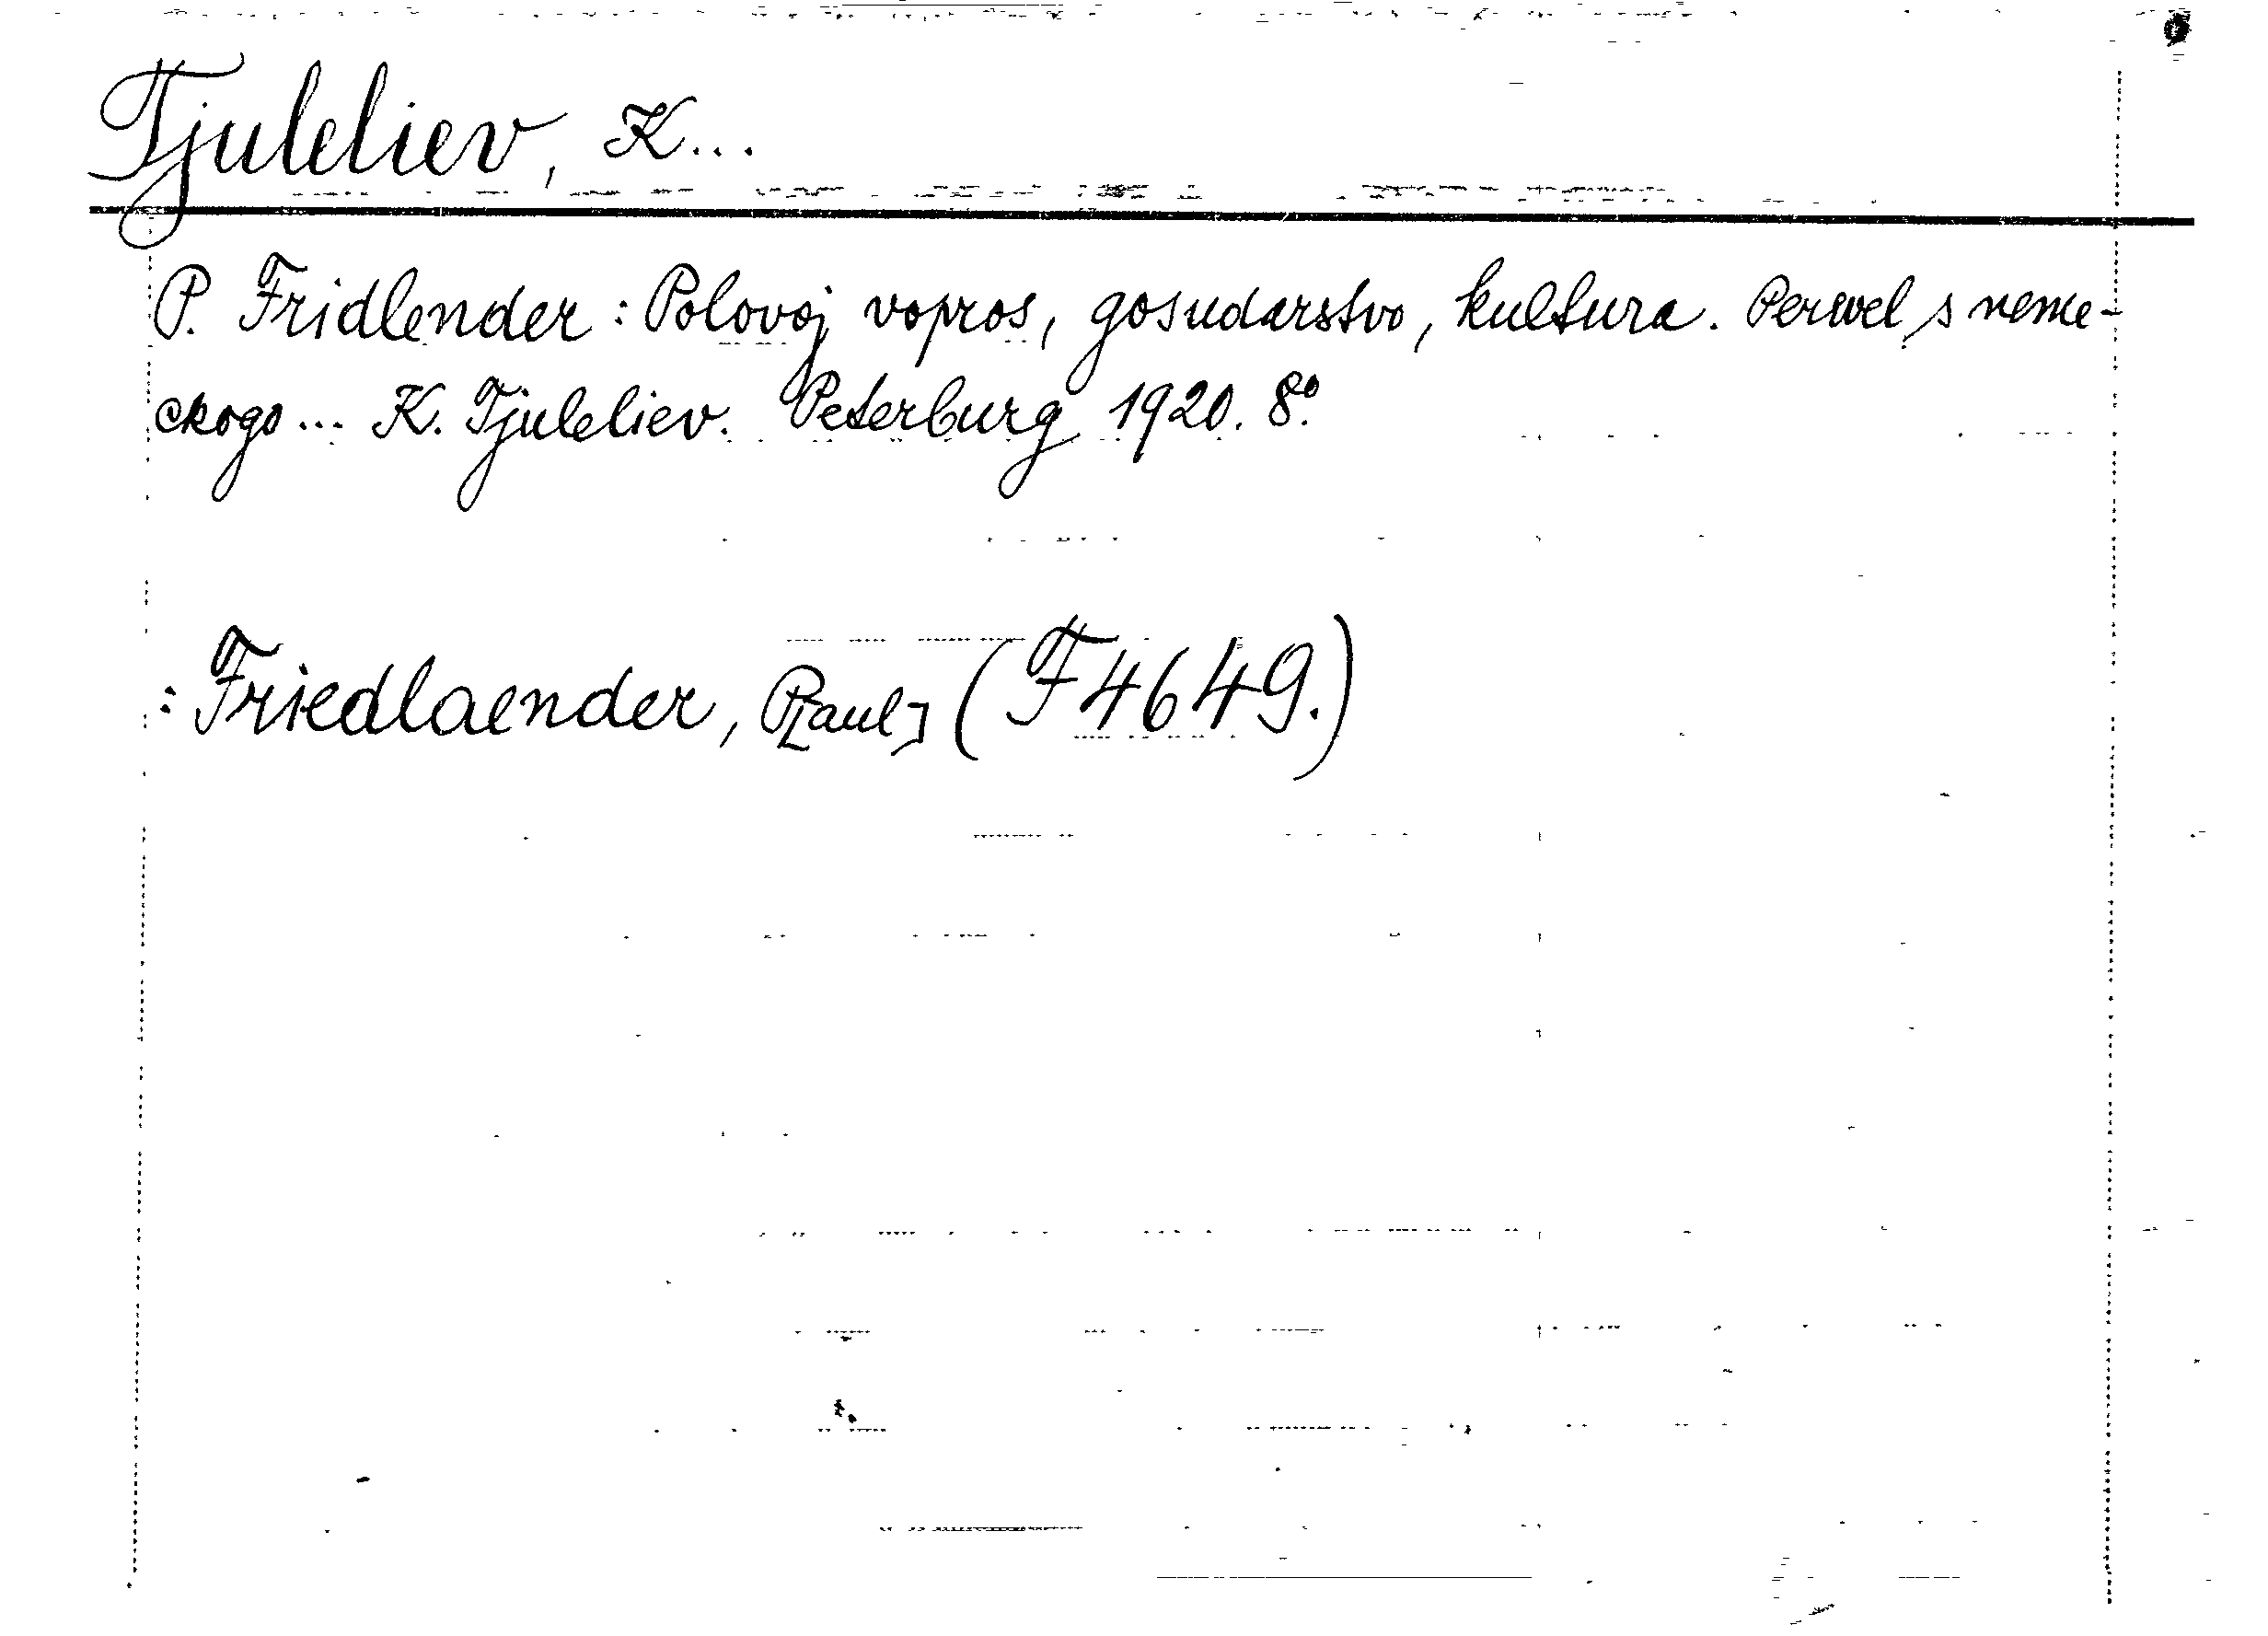 Tjuleliev, K...
P. Fridlender: Polovoj vopros, gosudarstvo, kultura. Perevel s neme-
ckogo... K. Tjuleliev. Peterburg 1920. 8°.
: Friedlaender, P[aul] (F 4649.)